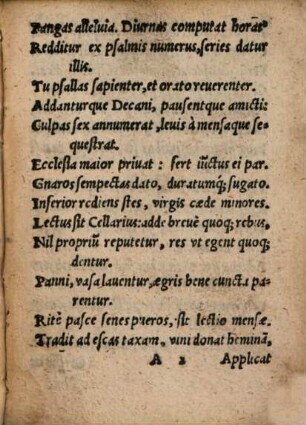 Pangas alleluia. Diurnas computat horas
Redditur ex psalmis numerus, series datur
illis.
Tu psallas sapienter, et orato reuerenter.
Addanturque Decani, pausentque amicti:
Culpas sex annumerat, leuis à mensaque se
questrat.
Ecclesia maior priuat: fert iũctus ei par.
Gnaros sempectas dato, duratumq; fugato.
Inferior rediens stes, virgis cæde minores.
Lectus sit Cellarius: adde breuē quoq; rebus,
Nil propriũ reputetur, res vt egent quoq;
dentur.
Panni, vasa lauentur, ægris bene cuncta pa-
rentur.
Ritè pasce senes pueros, sit lectio mensæ.
Tradit ad escas taxam, vini donat heminã,
A 2 Applicat